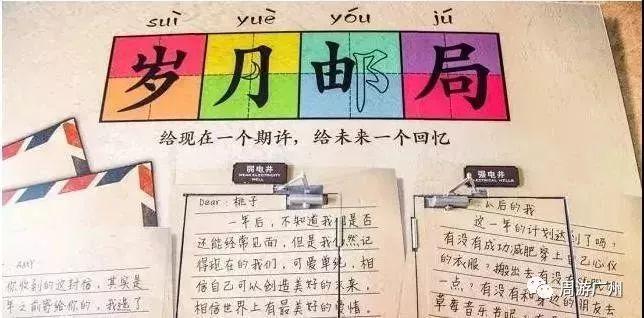 suì yuè yóu jú
岁月邮局
给现在一个期许，给未来一个回忆
弱电井
WEAK ELECTRICITY WELL
强电井
ELECTRICAL WELLS
Dear：桃子
一年后，不知道我们是否
还能经常见面，但是我仍然记
得现在的我们，可爱单纯，相
信自己可以创造美好的未来，
相信世界上有最美好的爱情。
以后的我
这一年的计划达到了吗？
有没有成功减肥穿上自己心仪
的衣服？搬出去有没有
一点？有没有和身边的朋友去
草莓音乐节呢？
AMY
你收到的这封信，其实是
年之前寄给你的，我选了
周游广州